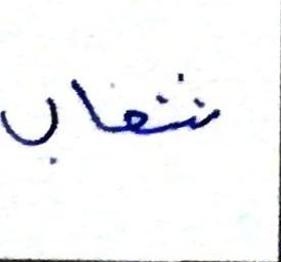 شعاب